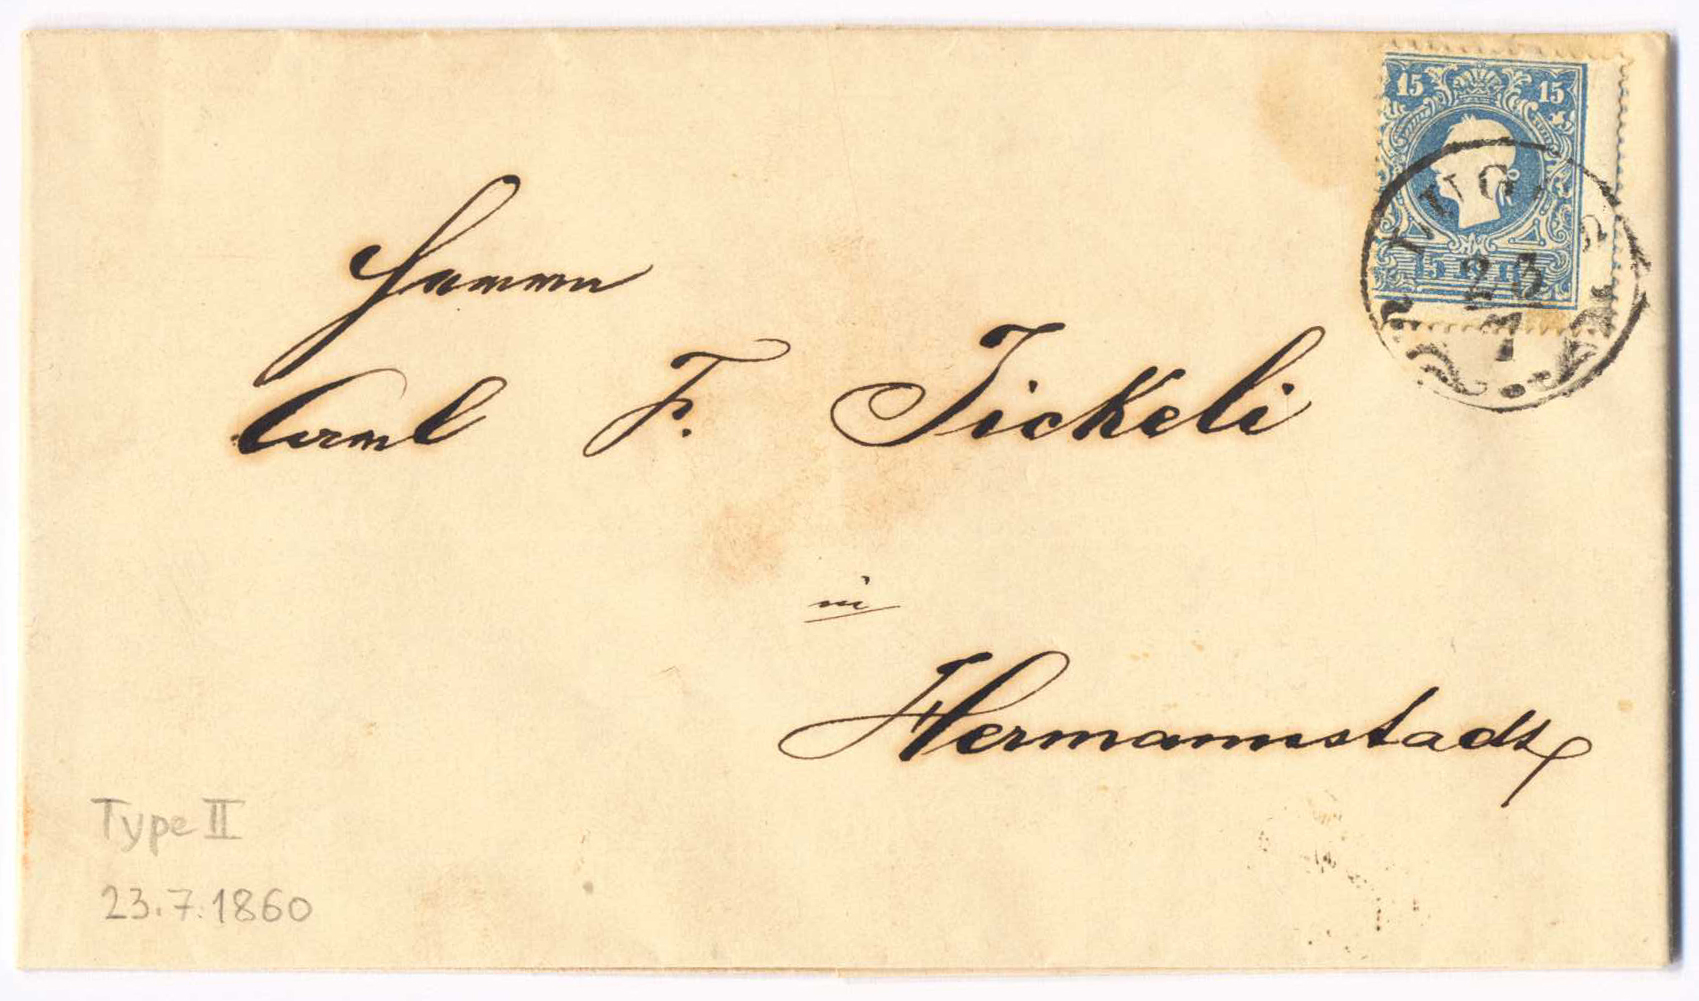 15 15
15 KR
23
7
Herrn
Carl F. Jickeli
in
Hermannstadt
Type II
23.7.1860